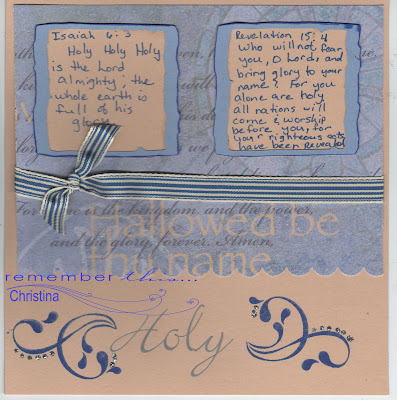 Isaiah 6:3
Holy Holy Holy
is the Lord
almighty; the
whole earth is
full of his
glory
Revelation 15:4
Who will not fear
you, O Lord, and
bring glory to your
name? For you
alone are holy
all nations will
come & worship
before you, for
your righteous acts
have been revealed
For thine is the kingdom, and the power,
Hallowed be
and the glory, forever. Amen.
thy name
remember this...
Christina
Holy